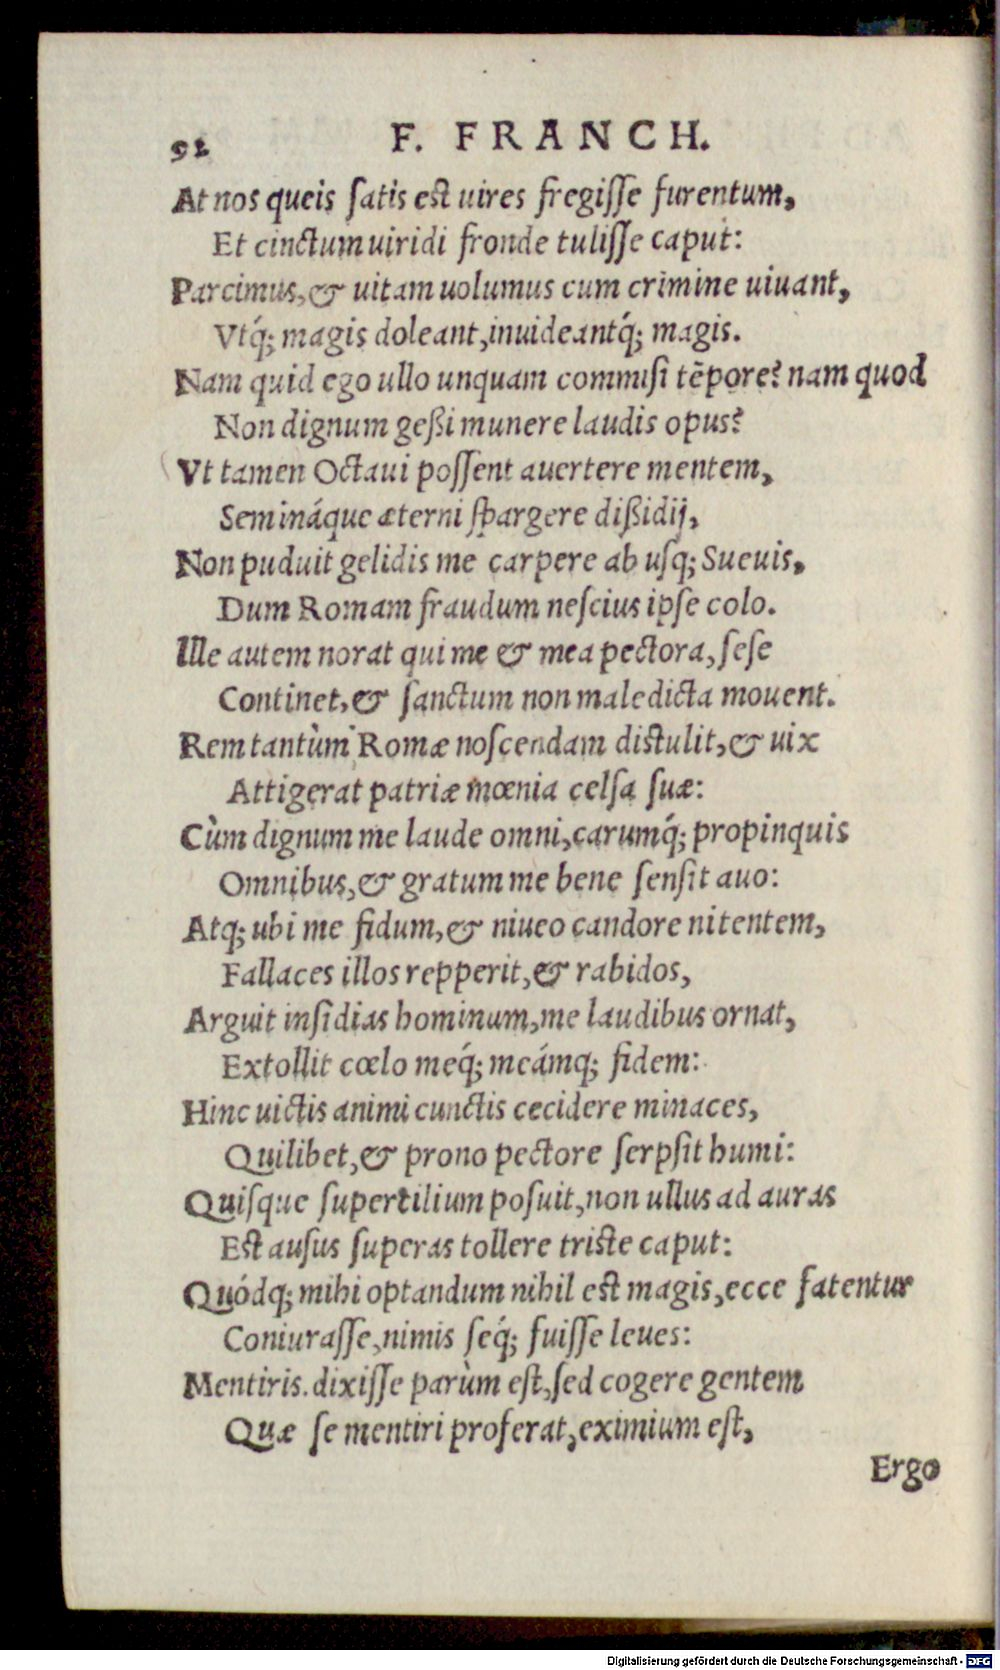 92 F. FRANCH.
At nos queis ſatis est uires fregiſſe furentum,
Et cinctum uiridi fronde tuliſſe caput:
Parcimus, & uitam uolumus cum crimine uiuant,
Vtq́; magis doleant, inuideantq́; magis.
Nam quid ego ullo unquam commiſi tēpore? nam quod
Non dignum geßi munere laudis opus?
Vt tamen Octaui poſſent auertere mentem,
Semináque æterni ſpargere dißidij,
Non puduit gelidis me carpere ab uſq; Sueuis,
Dum Romam fraudum neſcius ipſe colo.
Ille autem norat qui me & mea pectora, ſeſe
Continet, & ſanctum non maledicta mouent.
Rem tantùm Romæ noſcendam distulit, & uix
Attigerat patriæ mœnia celſa ſuæ:
Cùm dignum me laude omni, carumq́; propinquis
Omnibus, & gratum me bene ſenſit auo:
Atq; ubi me fidum, & niueo candore nitentem,
Fallaces illos repperit, & rabidos,
Arguit inſidias hominum, me laudibus ornat,
Extollit cœlo meq́; meámq; fidem:
Hinc uictis animi cunctis cecidere minaces,
Quilibet, & prono pectore ſerpſit humi:
Quiſque ſupertilium poſuit, non ullus ad auras
Est auſus ſuperas tollere triste caput:
Quódq; mihi optandum nihil est magis, ecce fatentur
Coniuraſſe, nimis ſeq́; fuiſſe leues:
Mentiris. dixiſſe parùm eſt, ſed cogere gentem
Quæ ſe mentiri proferat, eximium eſt,
Ergo
Digitalisierung gefördert durch die Deutsche Forschungsgemeinschaft - DFG